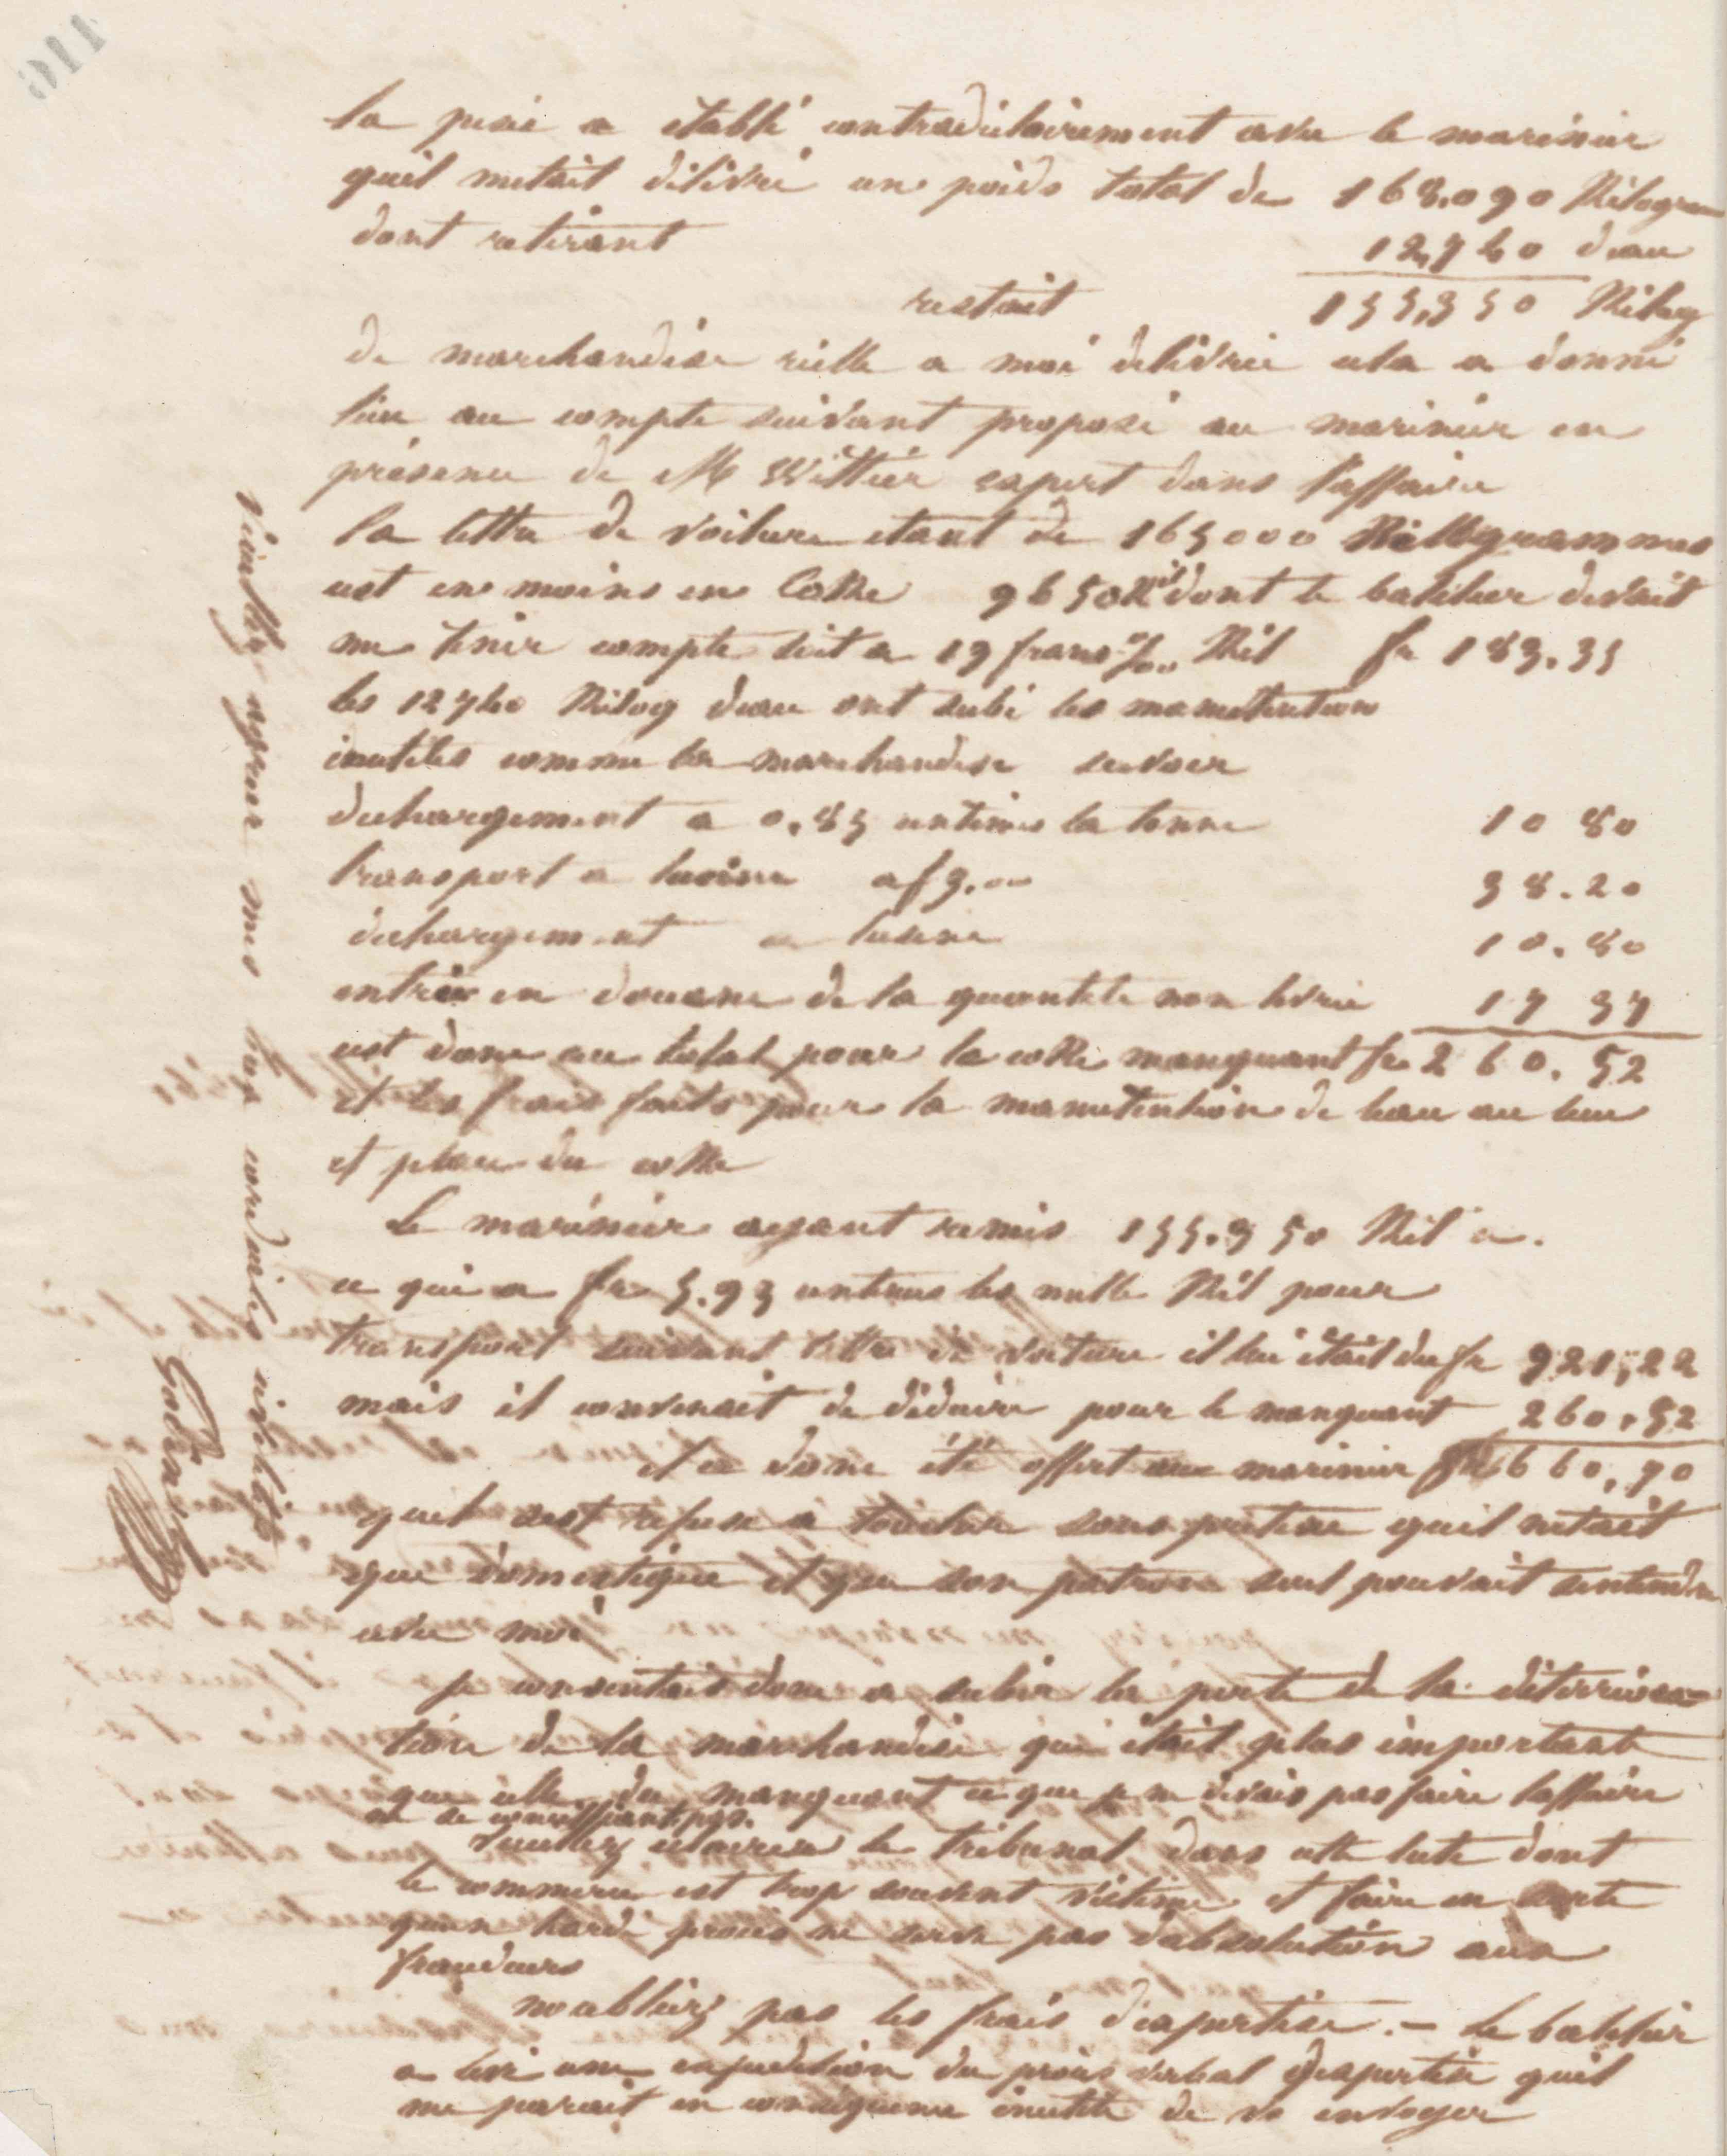 la pesée a établi contradictoirement avec le marinier
quil metait délivré un poids total de 168.090 Kilogram
dont retirant 12,740 deau
restait 155,350 Kilog
de marchandise réelle a moi délivrée cela a donné
lieu au compte suivant proposé au marinier en
présence de Mr Wittier expert dans l'affaire
la lettre de voiture etant de 165000 Killogrammes
cest en moins en Coke 9650 Kil dont le batelier devait
me tenir compte soit a 19 francs %00 Kil fr 183.35
les 12740 Kilog deau ont subi les manutention
inutiles comme la marchandise savoir
dechargement a 0,85 centimes la tonne 10 80
transport a lusine a f 3.00 38.20
dechargement a lusine 10.80
entrée en douane de la quantité non livrée 17 37
cest donc au total pour le coke manquant fr 260.52
et les frais faits pour la manutention de leau au lieu
et place du coke
Le marinier ayant remis 155.350 Kil a.
ce qui a fr 5.93 centimes les mille Kil pour
transport suivant lettre de voiture il lui était du fr 921,22
mais il convenait de déduire pour le manquant 260,52
il a donc été offert au marinier fr 660,70
quil cest refusé a toucher sous pretexte quil netait
que domestique et que son patron seul pouvait sentendre
avec moi
je consentais donc a subir la perte de la déterriora-
tion de la marchandise qui était plus important
que celle du manquant ce que je ne devais pas faire laffaire
ne se conciliant pas.
Veuillez éclairer le tribunal dans cette lutte dont
le commerce est trop souvent victime et faire en sorte
quun hardi procès ne serve pas dabsolution aux
fraudeurs
noubliez pas les frais dexpertise. – Le batelier
a levé une expedition du procès verbal dexpertise quil
me parait en conséquence inutile de vs envoyer
Veuillez agréer mes plus cordiales civilités